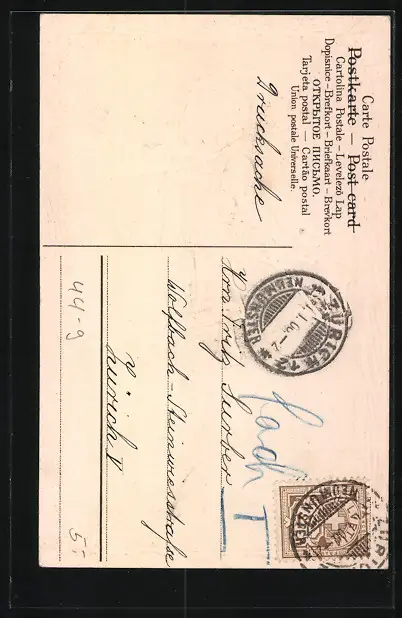 Carte Postale
Postkarte — Post card
Cartolina Postale – Levelező Lap
Dopisnice – Brefkort – Briefkaart – Brevkort
ОТКРЫТОЕ ПИСЬМО.
Tarjeta postal — Cartão postal
Union postale Universelle.
Drucksache
ZÜRICH 13
NEUMÜNSTER
Fach I
Hrn. Surber
Wolfbach – Steinwiesstraße
Zürich V
44-9
5.-